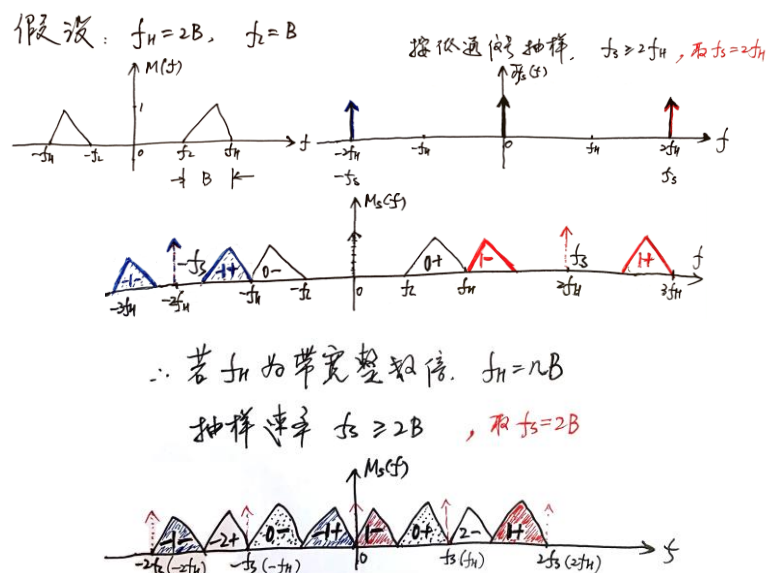 假设: f_H=2B, f_L=B
按低通信号抽样, f_s≥2f_H, 取f_s=2f_H
M(f)
1
-f_H -f_L 0 f_L f_H f
B
δ_s(f)
-2f_H -f_H 0 f_H 2f_H f
-f_s f_s
M_s(f)
-1- -f_s -1+ 0- 0+ 1- f_s 1+ f
-3f_H -2f_H -f_H -f_L 0 f_L f_H 2f_H 3f_H
∴ 若f_H为带宽整数倍. f_H=nB
抽样速率 f_s≥2B , 取f_s=2B
M_s(f)
-1- -2+ 0- -1+ 1- 0+ 2- 1+
-2f_s(-2f_H) -f_s(-f_H) 0 f_s(f_H) 2f_s(2f_H) f